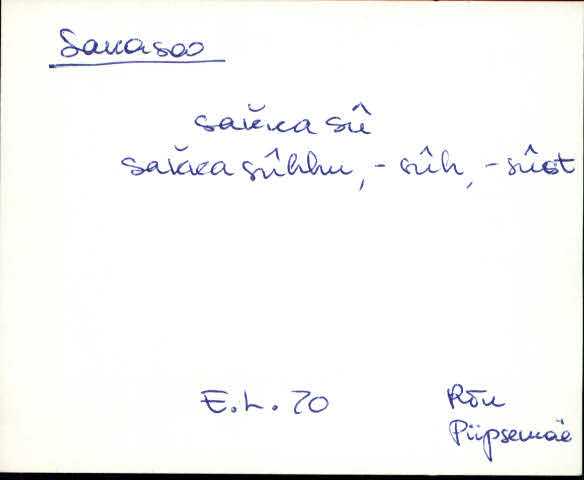 Sakasoo
saǩka sû
saǩka sûhhu, - sûh, - sûst
E.L. 70 Rõu
Piipsemäe